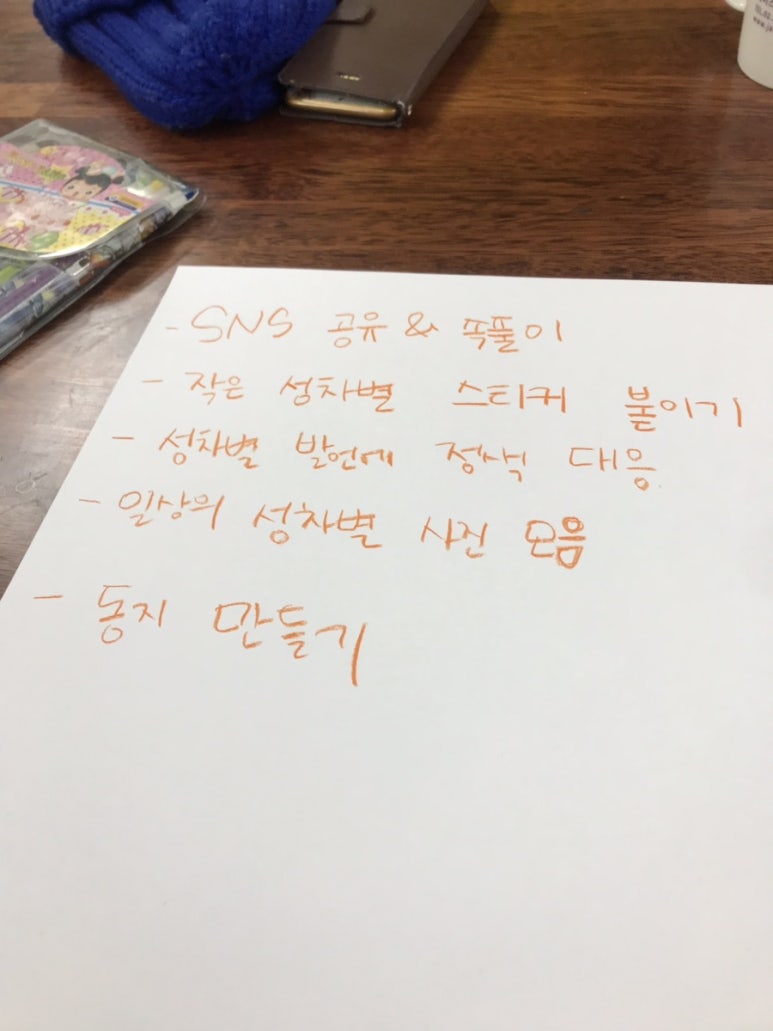 - SNS 공유 & 쪽풀이
- 작은 성차별 스티커 붙이기
- 성차별 발언에 정색 대응
- 일상의 성차별 사진 모음
- 동지 만들기